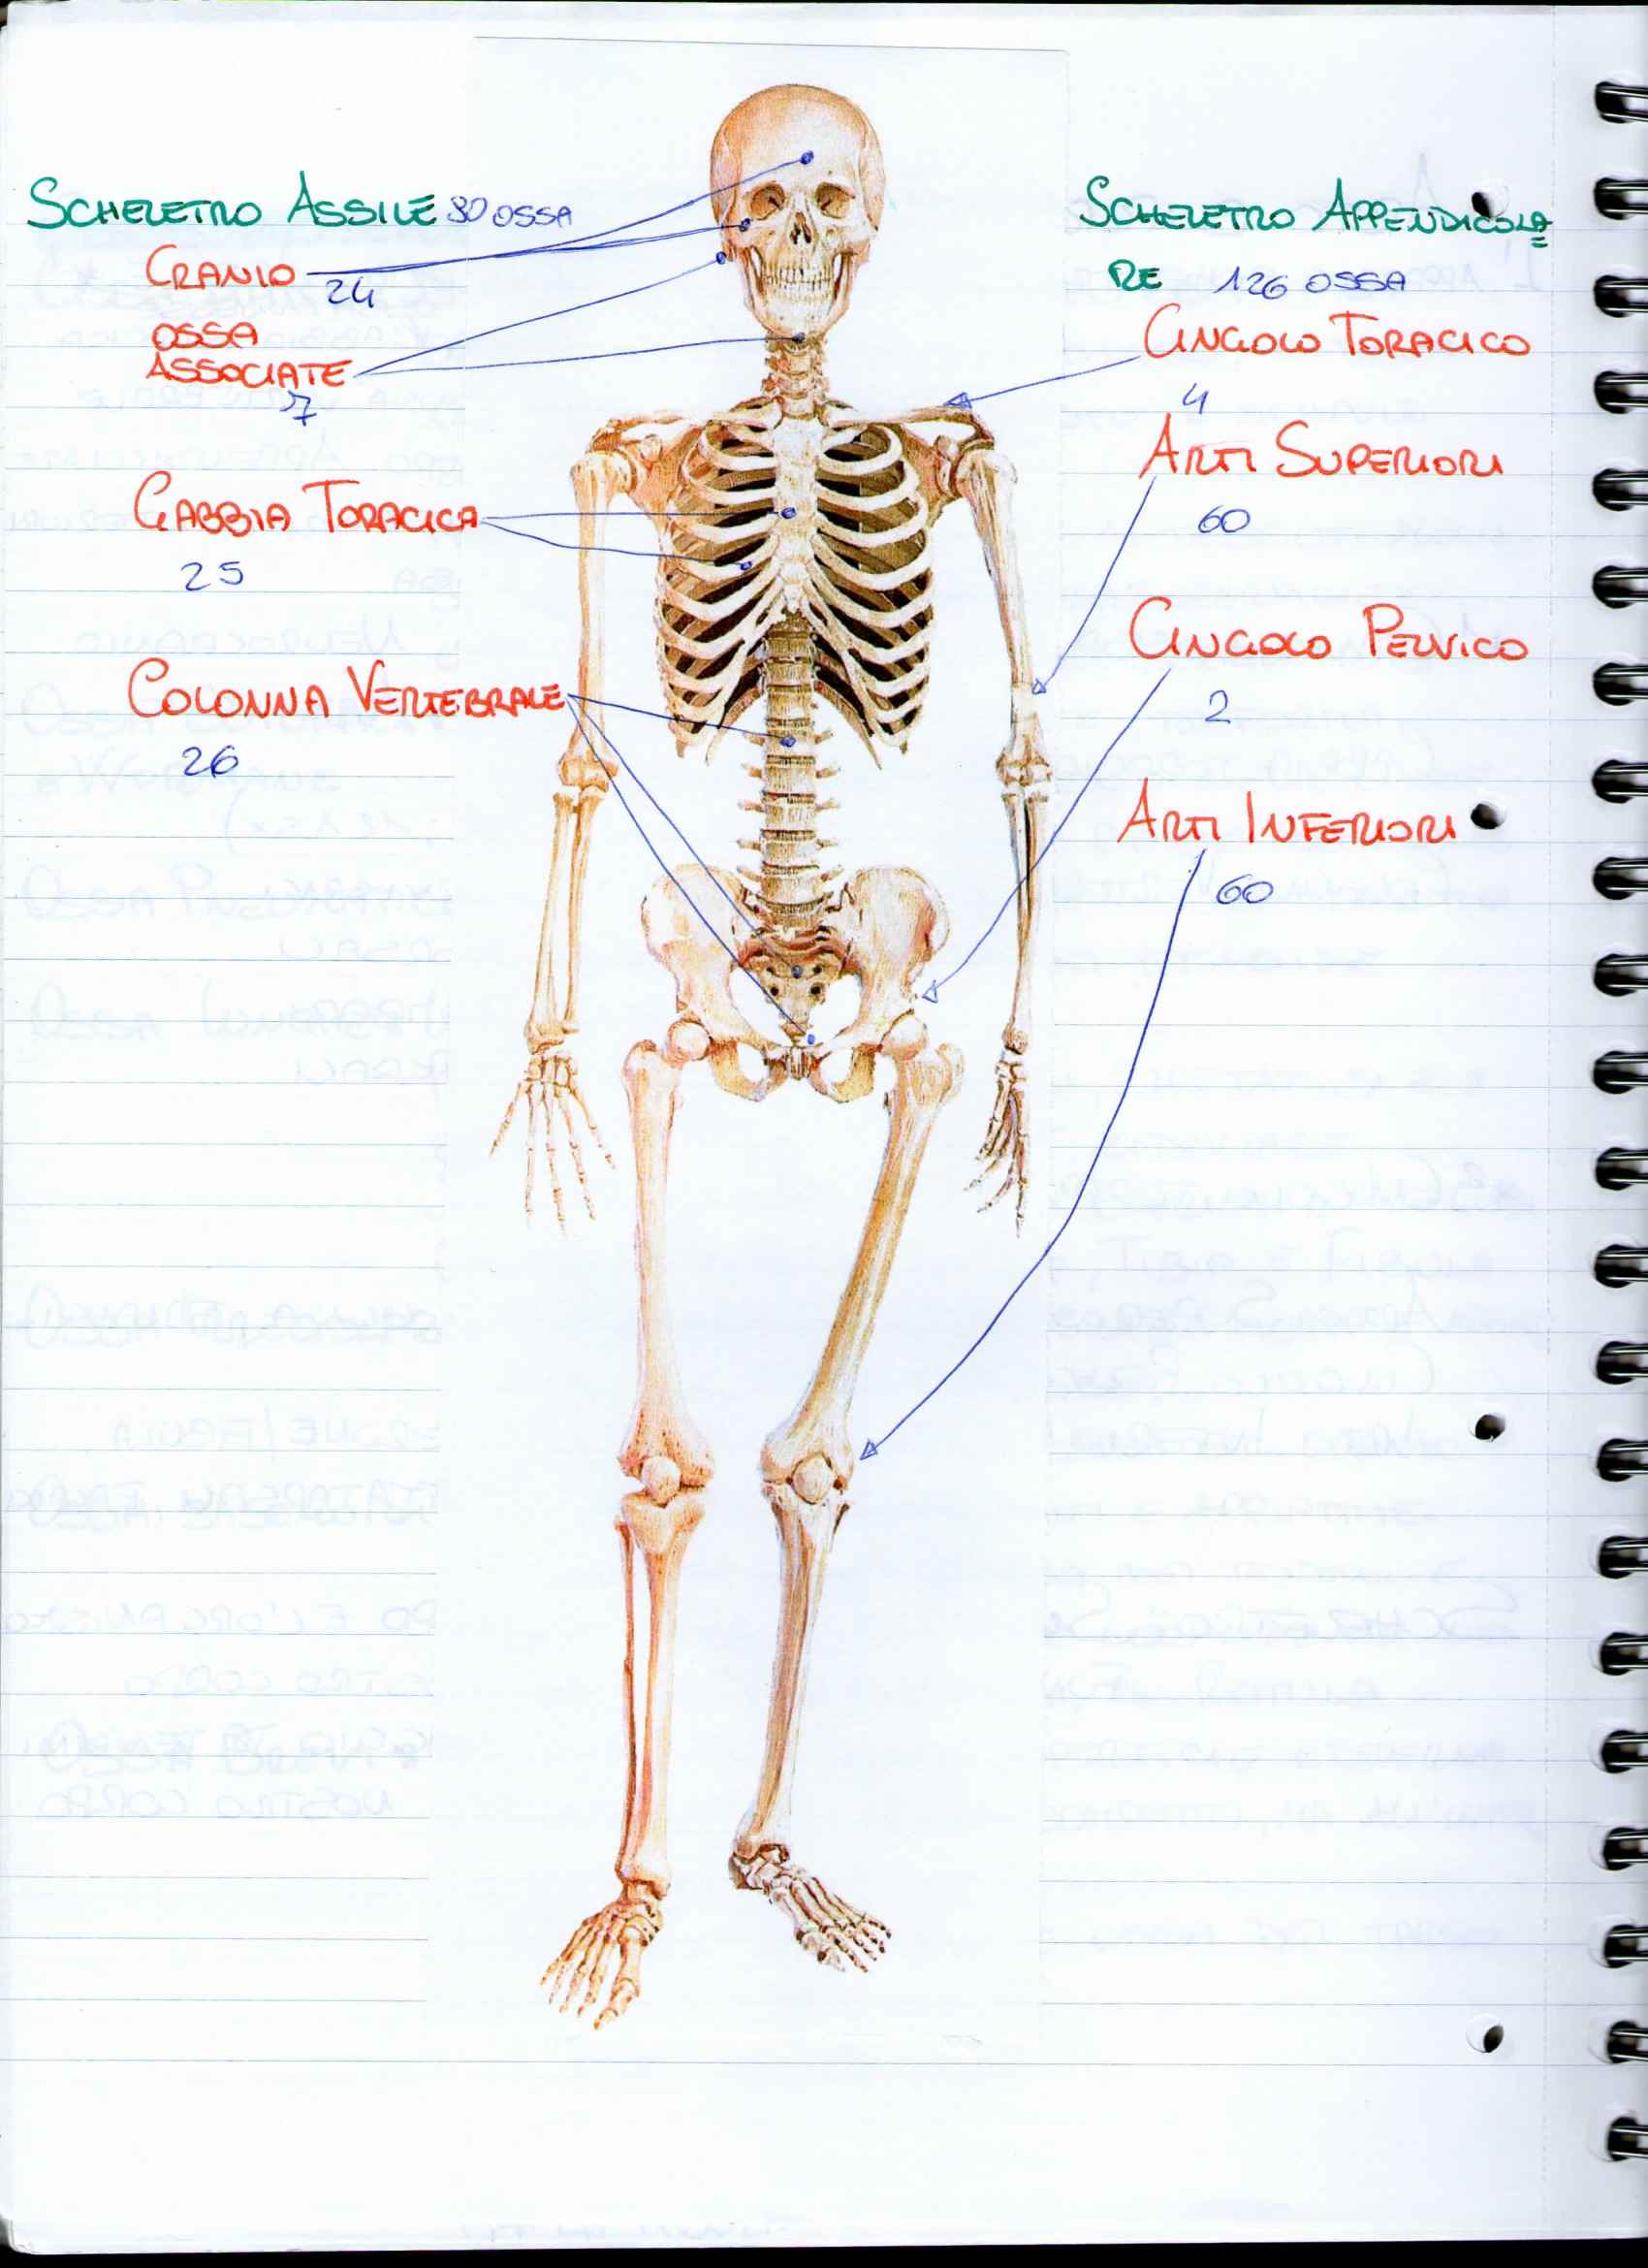 SCHELETRO ASSILE 80 OSSA
CRANIO
24
OSSA
ASSOCIATE
7
GABBIA TORACICA
25
COLONNA VERTEBRALE
26
SCHELETRO APPENDICOLA
RE 126 OSSA
CINGOLO TORACICO
4
ARTI SUPERIORI
60
CINGOLO PELVICO
2
ARTI INFERIORI
60